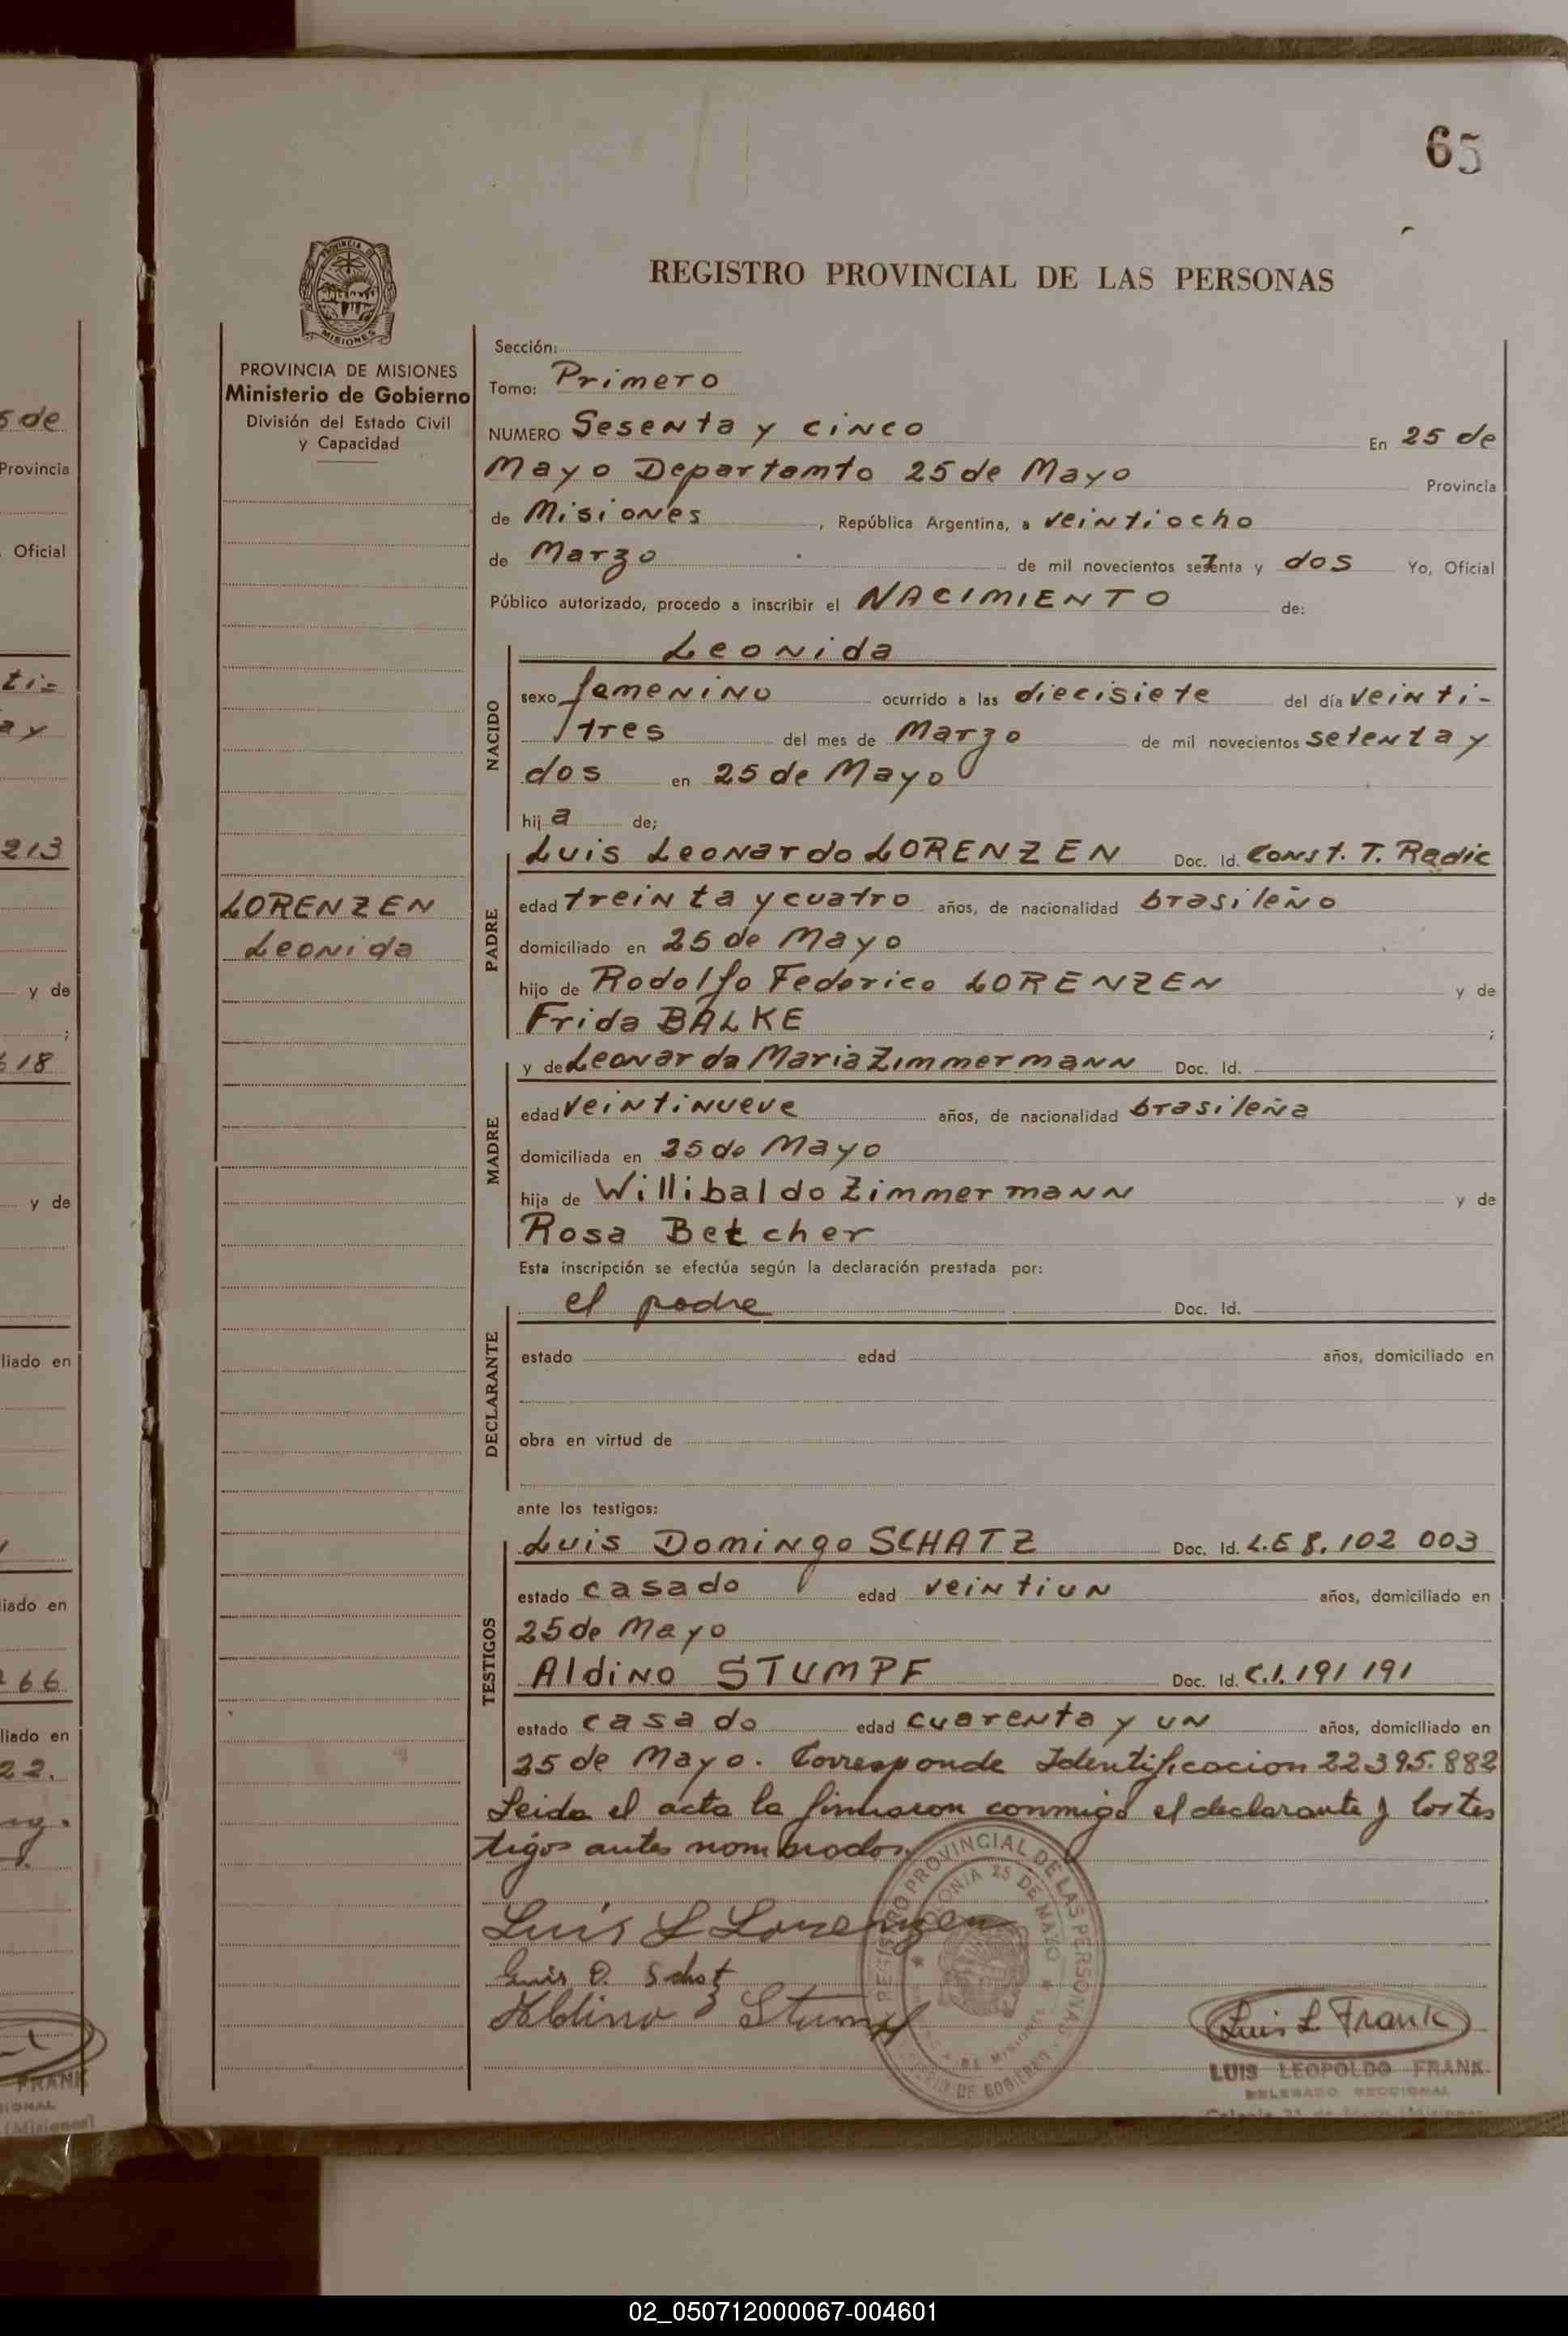 65
REGISTRO PROVINCIAL DE LAS PERSONAS
PROVINCIA DE
MISIONES
PROVINCIA DE MISIONES
Ministerio de Gobierno
División del Estado Civil
y Capacidad
Sección:
Tomo: Primero
NUMERO Sesenta y cinco En 25 de
Mayo Departamto 25 de Mayo Provincia
de Misiones, República Argentina, a veintiocho
de Marzo de mil novecientos setenta y dos Yo, Oficial
Público autorizado, procedo a inscribir el NACIMIENTO de:
NACIDO
Leonida
sexo femenino ocurrido a las diecisiete del día veinti-
tres del mes de Marzo de mil novecientos setenta y
dos en 25 de Mayo
hija de;
PADRE
Luis Leonardo LORENZEN Doc. Id. Const. T. Radic
edad treinta y cuatro años, de nacionalidad brasileño
domiciliado en 25 de Mayo
hijo de Rodolfo Federico LORENZEN y de
Frida BALKE ;
LORENZEN
Leonida
MADRE
y de Leonarda Maria Zimmermann Doc. Id.
edad veintinueve años, de nacionalidad brasileña
domiciliada en 25 de Mayo
hija de Willibaldo Zimmermann y de
Rosa Betcher
Esta inscripción se efectúa según la declaración prestada por:
DECLARANTE
el padre Doc. Id.
estado edad años, domiciliado en
obra en virtud de
ante los testigos:
TESTIGOS
Luis Domingo SCHATZ Doc. Id. L.E 8.102 003
estado casado edad veintiun años, domiciliado en
25 de Mayo
Aldino STUMPF Doc. Id. C.I. 191 191
estado casado edad cuarenta y un años, domiciliado en
25 de Mayo. Corresponde Identificacion 22.395.882
Leida el acta la firmaron conmigo el declarante y los tes
tigos antes nombrados.
REGISTRO PROVINCIAL DE LAS PERSONAS
COLONIA 25 DE MAYO
MISIONES
DE GOBIERNO
Luis L Lorenzen
Luis D. Schatz
Aldino Stumpf
Luis L Frank
LUIS LEOPOLDO FRANK
DELEGADO SECCIONAL
Colonia 25 de Mayo (Misiones)
5 de
Provincia
Oficial
ti=
a y
213
y de
;
618
y de
liado en
liado en
266
liado en
22.
FRANK
SIONAL
(Misiones)
02_050712000067-004601